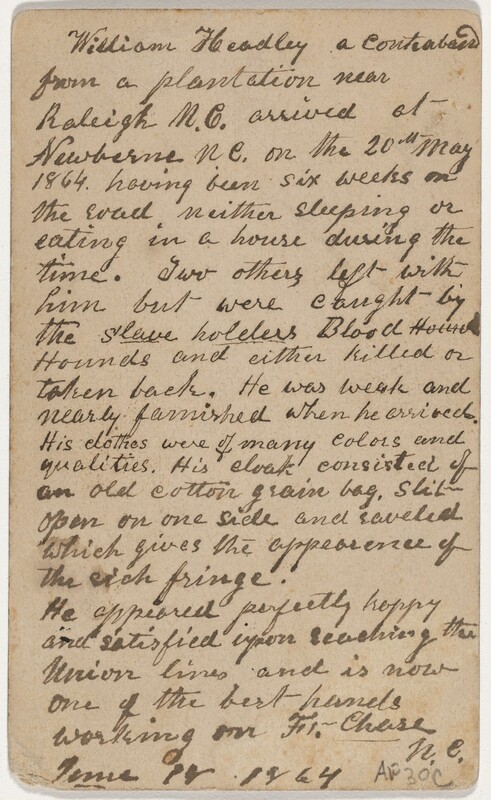 William Headley a contraband
from a plantation near
Raleigh N.C. arrived at
Newberne N.C. on the 20th May
1864. having been six weeks on
the road neither sleeping or
eating in a house during the
time. Two others left with
him but were caught by
the slave holders Blood Hound
Hounds and either killed or
taken back. He was weak and
nearly famished when he arrived.
His clothes were of many colors and
qualities. His cloak consisted of
an old cotton grain bag, slit
open on one side and raveled
which gives the appearence of
the rich fringe.
He appeared perfectly happy
and satisfied upon reaching the
Union lines and is now
one of the best hands
working on Ft. Chase
N.C.
June 18 1864
AF30C